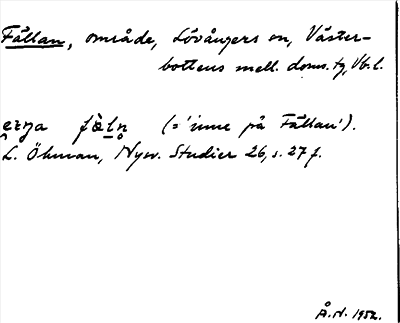 Fällan, område, Lövångers sn, Väster-
bottens mell. doms. tg, Vb. l.
fäln (= 'inne på Fällan').
L. Öhman, Nysv. Studier 26, s. 27 f.
Å.N. 1952.